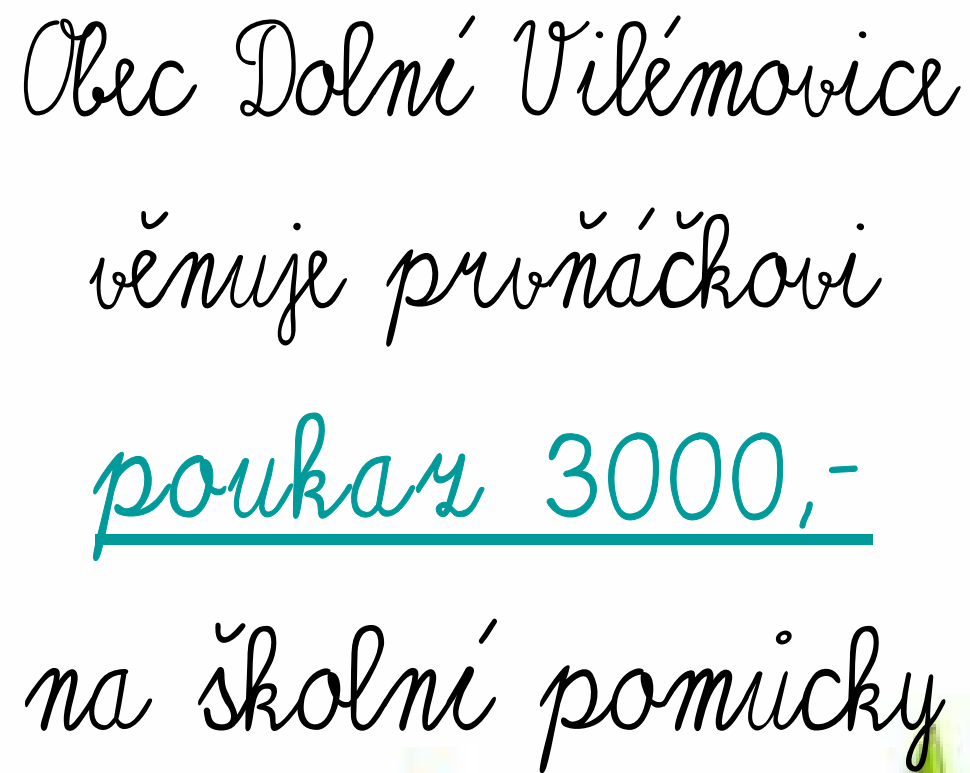 Obec Dolní Vilémovice
věnuje prvňáčkovi
poukaz 3000,-
na školní pomůcky